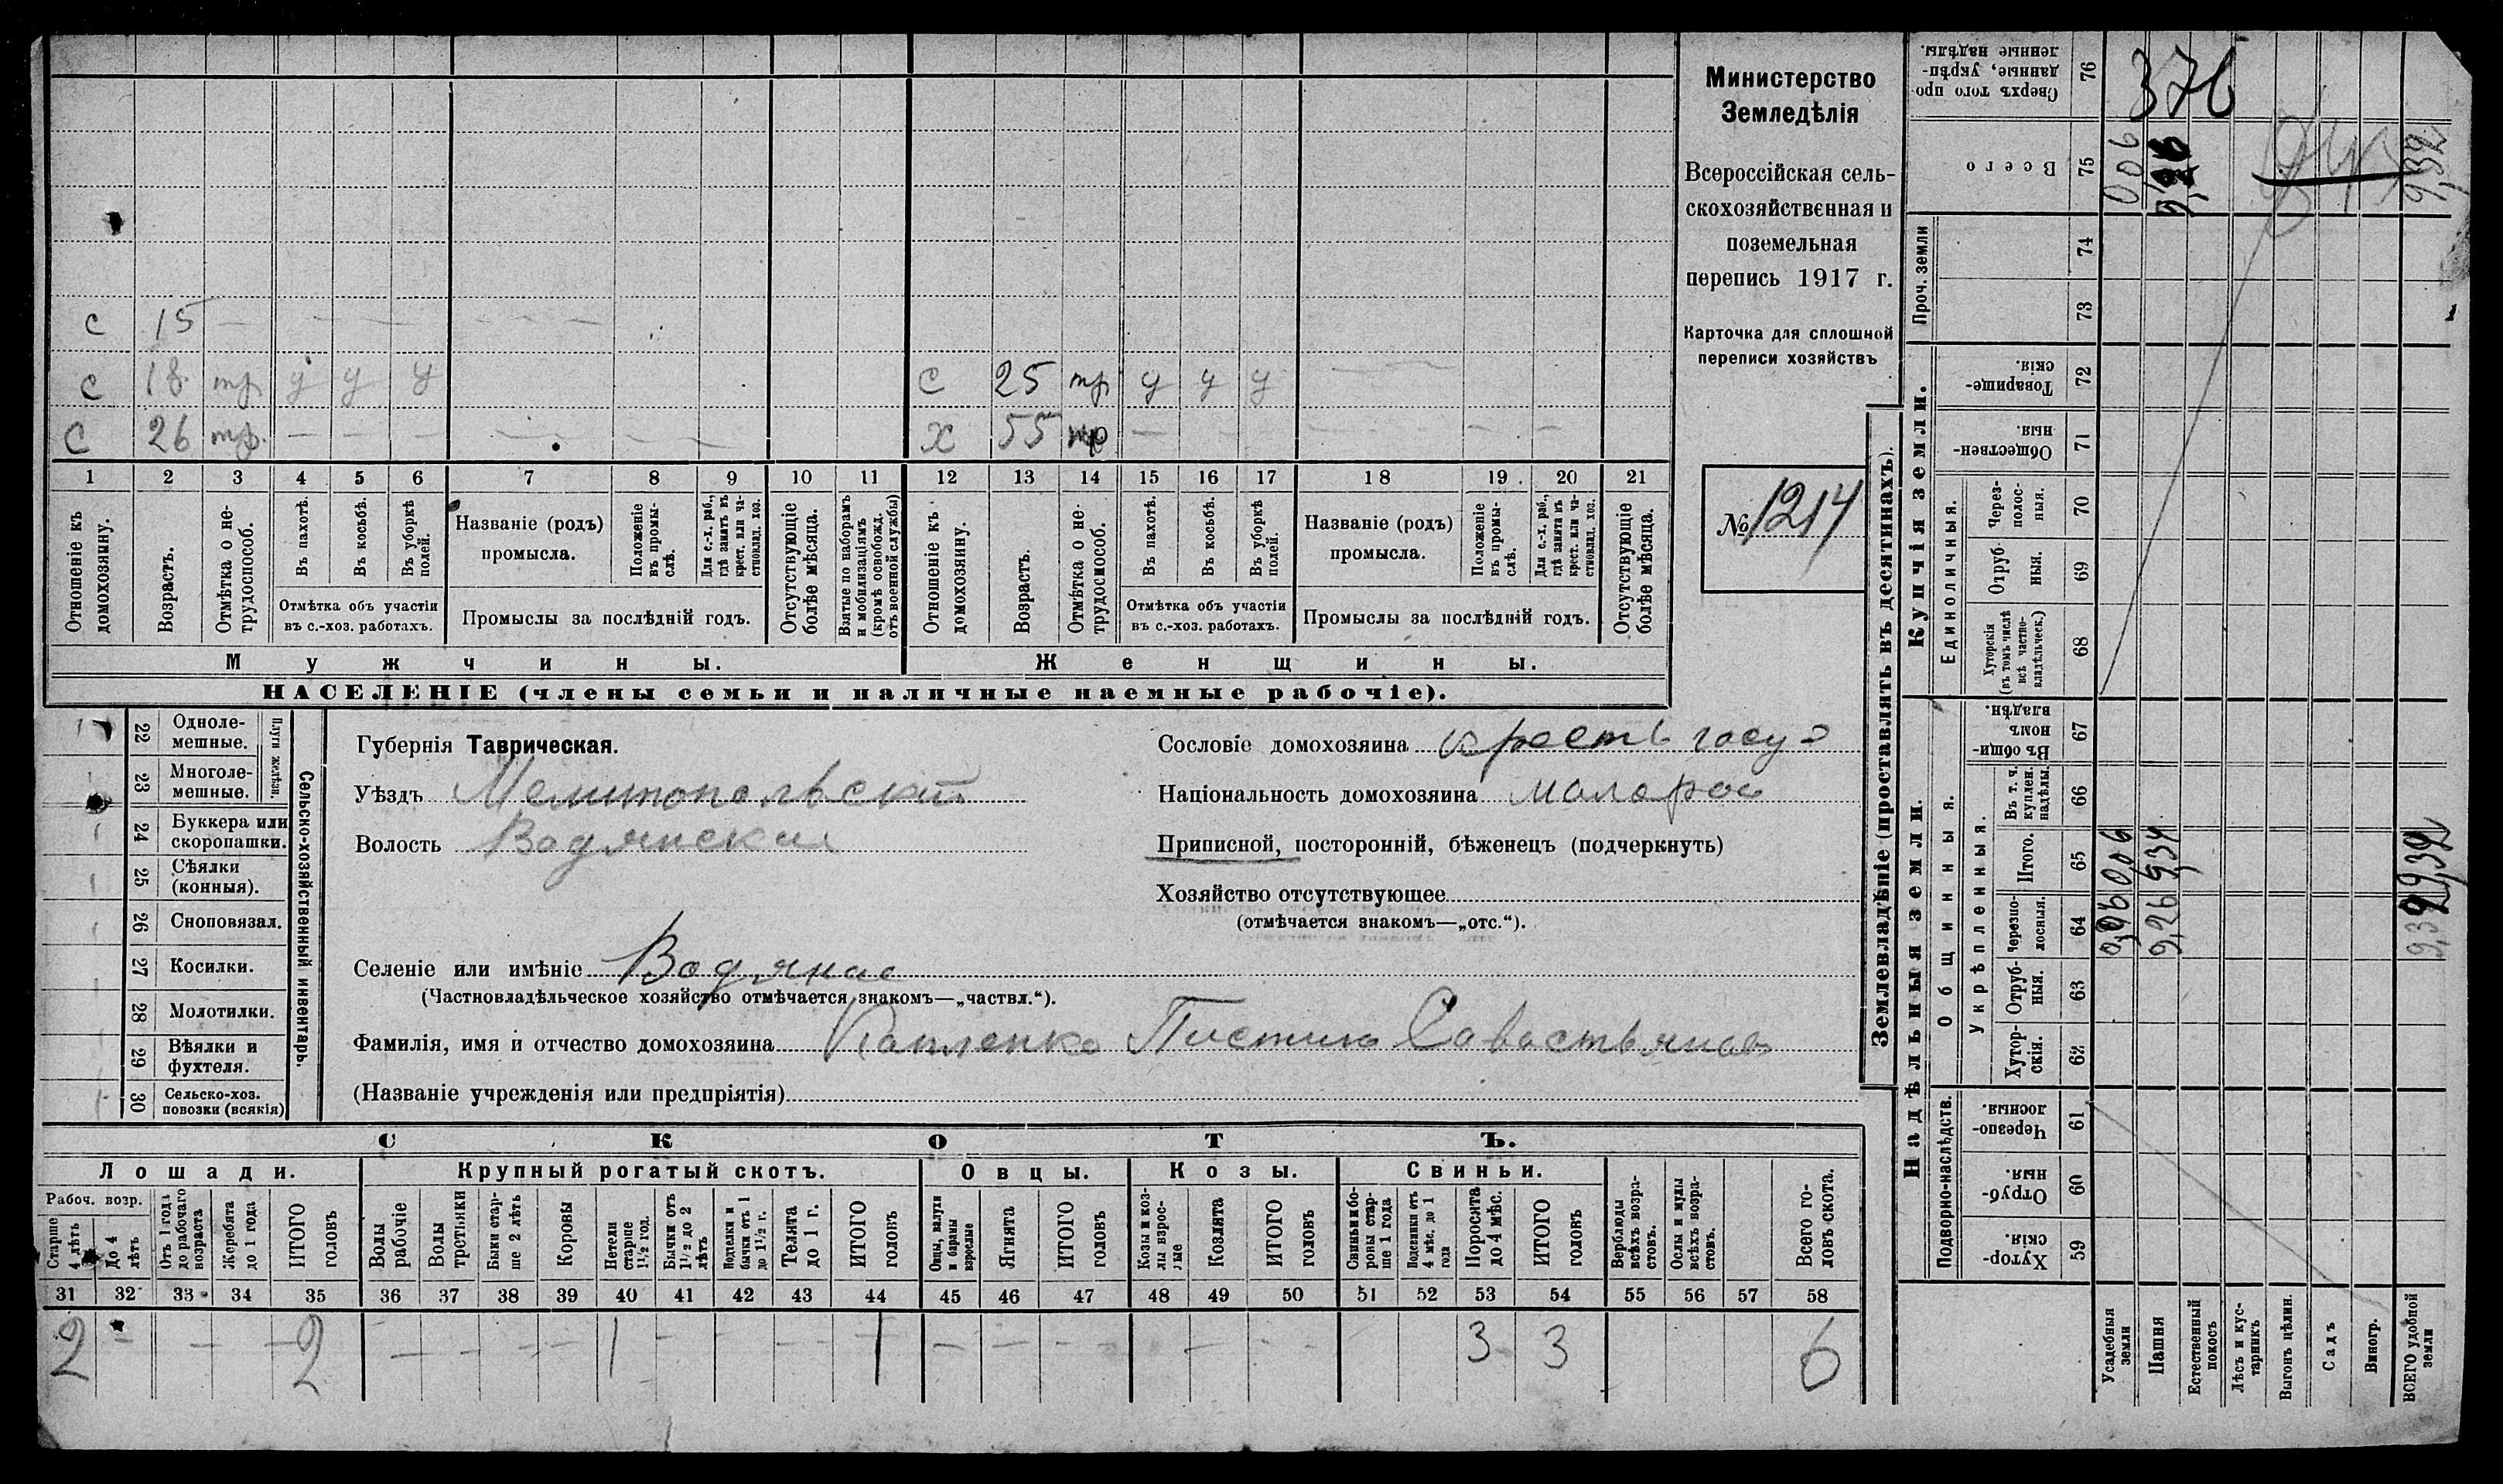 Министерство
Земледѣлія
Всероссійская сель-
скохозяйственная и
поземельная
перепись 1917 г.
Карточка для сплошной
переписи хозяйствъ
№ 1214
с 15 — — — — — — —
с 18 тр у у у
с 25 тр у у у — —
с 26 тр. — — — — — — —
х 55 тр — — — — — — —
1 2 3 4 5 6 7 8 9 10 11 12 13 14 15 16 17 18 19 20 21
Отношеніе къ домохозяину.
Возрастъ.
Отмѣтка о не-трудоспособ.
Въ пахотѣ.
Въ косьбѣ.
Въ уборкѣ полей.
Отмѣтка объ участіи
въ с.-хоз. работахъ.
Названіе (родъ)
промысла.
Положеніе въ промы-слѣ.
Для с.-х. раб., гдѣ занятъ въ крест. или ча-стновлад. хоз.
Промыслы за послѣдній годъ.
Отсутствующіе болѣе мѣсяца.
Взятые по наборамъ и мобилизаціямъ (кромѣ освобожд. отъ военной службы)
Отношеніе къ домохозяину.
Возрастъ.
Отмѣтка о не-трудоспособ.
Въ пахотѣ.
Въ косьбѣ.
Въ уборкѣ полей.
Отмѣтка объ участіи
въ с.-хоз. работахъ.
Названіе (родъ)
промысла.
Положеніе въ промы-слѣ.
Для с.-х. раб., гдѣ занята въ крест. или ча-стновлад. хоз.
Промыслы за послѣдній годъ.
Отсутствующіе болѣе мѣсяца.
Мужчины.
Женщины.
НАСЕЛЕНІЕ (члены семьи и наличные наемные рабочіе).
Сельско-хозяйственный инвентарь.
Плуги желѣзн.
1 22 Одноле-мешные.
23 Многоле-мешные.
1 24 Буккера или скоропашки.
1 25 Сѣялки (конныя).
26 Сноповязал.
1 27 Косилки.
28 Молотилки.
29 Вѣялки и фухтеля.
1 30 Сельско-хоз. повозки (всякія)
Губернія Таврическая.
Уѣздъ Мелитопольскій
Волость Водянская
Сословіе домохозяина крестъ госу
Національность домохозяина малорос
Приписной, посторонній, бѣженецъ (подчеркнуть)
Хозяйство отсутствующее
(отмѣчается знакомъ—„отс.“).
Селеніе или имѣніе Водяное
(Частновладѣльческое хозяйство отмѣчается знакомъ—„частвл.“).
Фамилія, имя и отчество домохозяина Савастьянов
(Названіе учрежденія или предпріятія)
СКОТЪ.
Лошади.
Крупный рогатый скотъ.
Овцы.
Козы.
Свиньи.
Рабоч. возр.
Старше 4 лѣтъ
До 4 лѣтъ
Отъ 1 года до рабочаго возраста
Жеребята до 1 года
ИТОГО головъ
Волы рабочіе
Волы третьяки
Быки стар-ше 2 лѣтъ
Коровы
Нетели старше 1½ год.
Бычки отъ 1½ до 2 лѣтъ
Подтелки и бычки отъ 1 до 1½ г.
Телята до 1 г.
ИТОГО головъ
Овцы, валухи и бараны взрослые
Ягнята
ИТОГО головъ
Козы и коз-лы взрос-лые
Козлята
ИТОГО головъ
Свиньи и бо-ровы стар-ше 1 года
Подсвинки отъ 4 мѣс. до 1 года
Поросята до 4 мѣс.
ИТОГО головъ
Верблюды всѣхъ возра-стовъ.
Ослы и мулы всѣхъ возра-стовъ.
Всего го-ловъ скота.
31 32 33 34 35 36 37 38 39 40 41 42 43 44 45 46 47 48 49 50 51 52 53 54 55 56 57 58
2 — — — 2 — — — — 1 — — — 1 — — — — — — 3 3 6
Землевладѣніе (проставлять въ десятинахъ).
Надѣльныя земли.
Купчія земли.
Проч. земли
Подворно-наслѣдств.
Общинныя.
Укрѣпленныя.
Единоличныя.
Хутор-скія. 59
Отруб-ныя. 60
Черезпо-лосныя. 61
Хутор-скія. 62
Отруб-ныя. 63
Черезпо-лосныя. 64
Итого. 65
Въ т. ч. куплен. надѣлы. 66
Въ общи-номъ владѣн. 67
Хуторскія (въ томъ числѣ всѣ частно-владѣльческ.) 68
Отруб-ныя. 69
Через-полос-ныя. 70
Обществен-ныя. 71
Товарище-скія. 72
73
74
Всего 75
Сверхъ того про-данные, укрѣп-ленные надѣлы. 76
Усадебныя земли 0,06 006 006
Пашня 9,26
Естественный покосъ
Лѣсъ и кус-тарникъ
Выгонъ цѣлин.
Садъ
Виногр.
ВСЕГО удобной земли 9,32 9,32 9,32
376